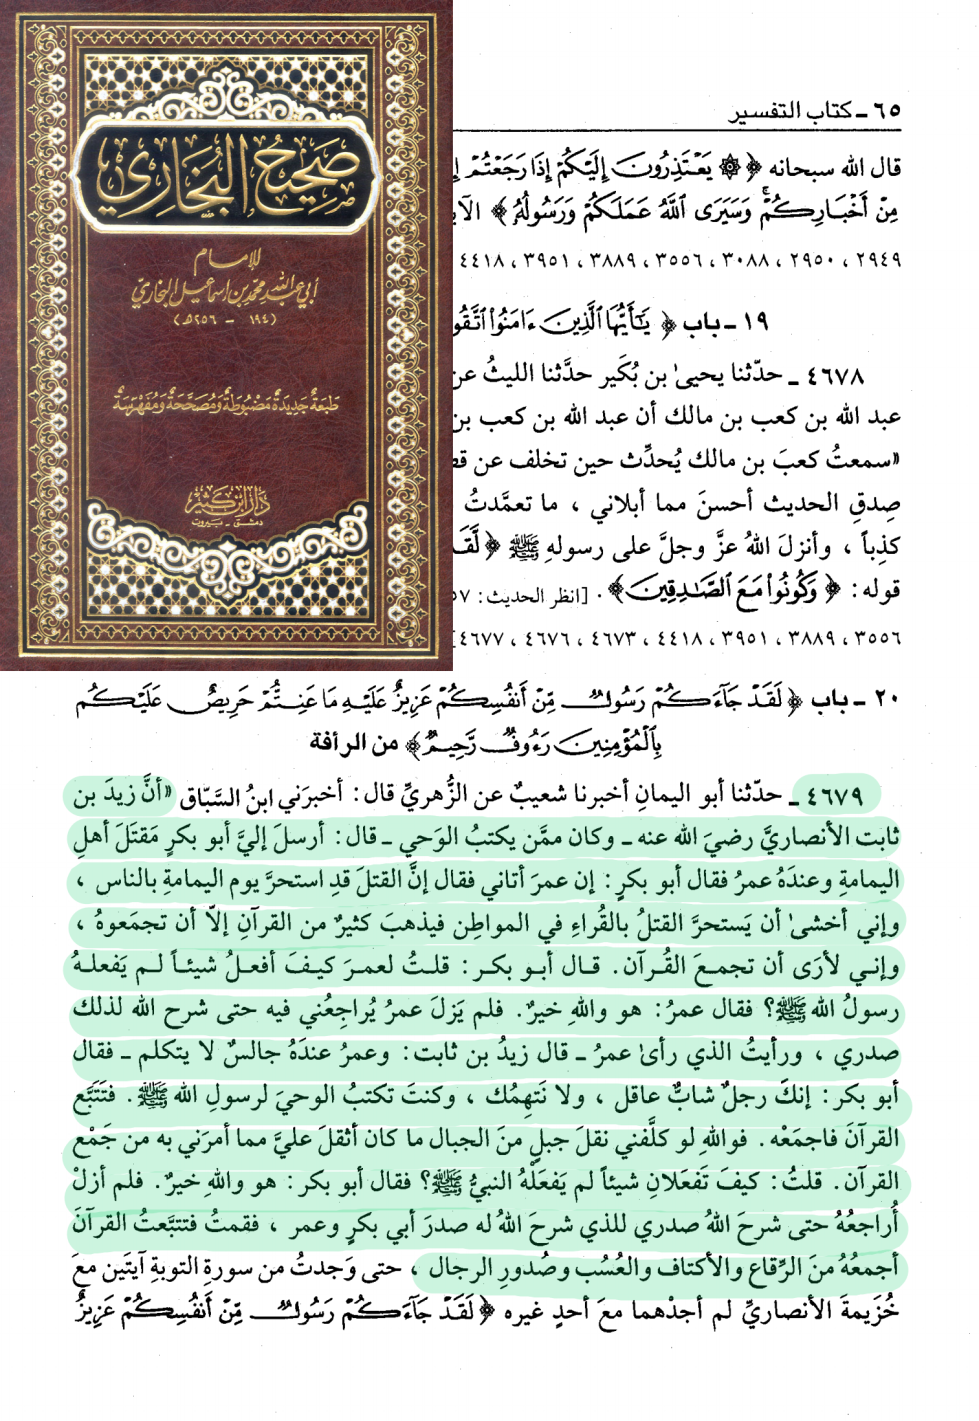 صَحِيحُ البُخَارِي
للإمام
أبي عبد الله محمد بن إسماعيل البخاريّ
(١٩٤ - ٢٥٦هـ)
طبعة جديدة مضبوطة ومصححة ومفهرسة
دار ابن كثير
دمشق - بيروت
٦٥ ـ كتاب التفسير
قال الله سبحانه ﴿ ۞ يَعْتَذِرُونَ إِلَيْكُمْ إِذَا رَجَعْتُمْ
مِنْ أَخْبَارِكُمْ وَسَيَرَى اللَّهُ عَمَلَكُمْ وَرَسُولُهُ﴾
٢٩٤٩ ، ٢٩٥٠ ، ٣٠٨٨ ، ٣٥٥٦ ، ٣٨٨٩ ، ٣٩٥١ ، ٤٤١٨
١٩ ـ باب ﴿ يَٰٓأَيُّهَا الَّذِينَ ءَامَنُوا اتَّقُو
٤٦٧٨ ـ حدّثنا يحيىٰ بن بُكَير حدَّثنا الليثُ عن
عبد الله بن كعب بن مالك أن عبد الله بن كعب بن
«سمعتُ كعبَ بن مالك يُحدِّث حين تخلف عن
صِدقِ الحديث أحسنَ مما أبلاني ، ما تعمَّدتُ
كذِباً ، وأنزلَ اللهُ عزَّ وجلَّ على رسولهِ ﷺ ﴿لَّقَد
قوله: ﴿ وَكُونُوا مَعَ الصَّٰدِقِينَ﴾. [انظر الحديث: ٥٧
٣٥٥٦ ، ٣٨٨٩ ، ٣٩٥١ ، ٤٤١٨ ، ٤٦٧٣ ، ٤٦٧٦ ، ٤٦٧٧]
٢٠ ـ باب ﴿لَقَدْ جَآءَكُمْ رَسُولٌ مِّنْ أَنفُسِكُمْ عَزِيزٌ عَلَيْهِ مَا عَنِتُّمْ حَرِيصٌ عَلَيْكُم
بِالْمُؤْمِنِينَ رَءُوفٌ رَّحِيمٌ﴾ من الرأفة
٤٦٧٩ ـ حدّثنا أبو اليمانِ أخبرنا شعيبٌ عن الزُّهريِّ قال: أخبرَني ابنُ السَّبّاق «أنَّ زيدَ بن
ثابت الأنصاريَّ رضيَ الله عنه ـ وكان ممَّن يكتبُ الوَحي ـ قال: أرسلَ إليَّ أبو بكرٍ مَقتَلَ أهلِ
اليمامةِ وعندَهُ عمرُ فقال أبو بكرٍ: إن عمرَ أتاني فقال إنَّ القتلَ قدِ استحرَّ يوم اليمامةِ بالناس ،
وإني أخشىٰ أن يَستحرَّ القتلُ بالقُراءِ في المواطِن فيذهبَ كثيرٌ من القرآنِ إلاّ أن تجمَعوهُ ،
وإني لأرَى أن تجمعَ القُرآن. قال أبو بكر: قلتُ لعمرَ كيفَ أفعلُ شيئاً لم يَفعلهُ
رسولُ الله ﷺ؟ فقال عمرُ: هو واللهِ خيرٌ. فلم يَزلَ عمرُ يُراجِعُني فيه حتى شرح الله لذلك
صدري ، ورأيتُ الذي رأىٰ عمرُ ـ قال زيدُ بن ثابت: وعمرُ عندَهُ جالسٌ لا يتكلم ـ فقال
أبو بكر: إنكَ رجلٌ شابٌّ عاقل ، ولا نَتهمُك ، وكنتَ تكتبُ الوحيَ لرسولِ الله ﷺ. فتَتَبَّع
القرآنَ فاجمَعْه. فواللهِ لو كلَّفني نقلَ جبلٍ منَ الجبال ما كان أثقلَ عليَّ مما أمرَني به من جَمْع
القرآن. قلتُ: كيفَ تَفعَلانِ شيئاً لم يَفعَلْهُ النبيُّ ﷺ؟ فقال أبو بكر: هو واللهِ خيرٌ. فلم أزلْ
أُراجعُهُ حتى شرحَ اللهُ صدري للذي شرحَ اللهُ له صدرَ أبي بكرٍ وعمر ، فقمتُ فتتبَّعتُ القرآنَ
أجمعُهُ منَ الرِّقاع والأكتاف والعُسُب وصُدورِ الرجال ، حتى وَجدتُ من سورةِ التوبةِ آيتَين معَ
خُزَيمةَ الأنصاريِّ لم أجدْهما معَ أحدٍ غيره ﴿لَقَدْ جَآءَكُمْ رَسُولٌ مِّنْ أَنفُسِكُمْ عَزِيزٌ